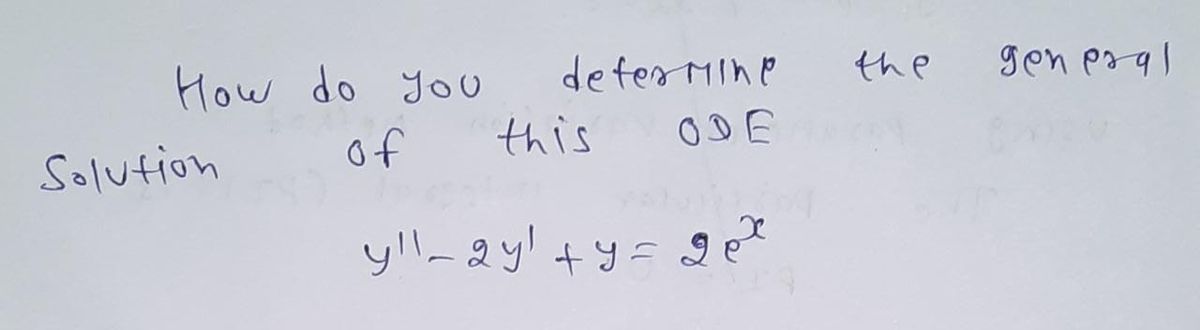 How do you determine the general
Solution of this ODE
y'' - 2y' + y = 2e^x